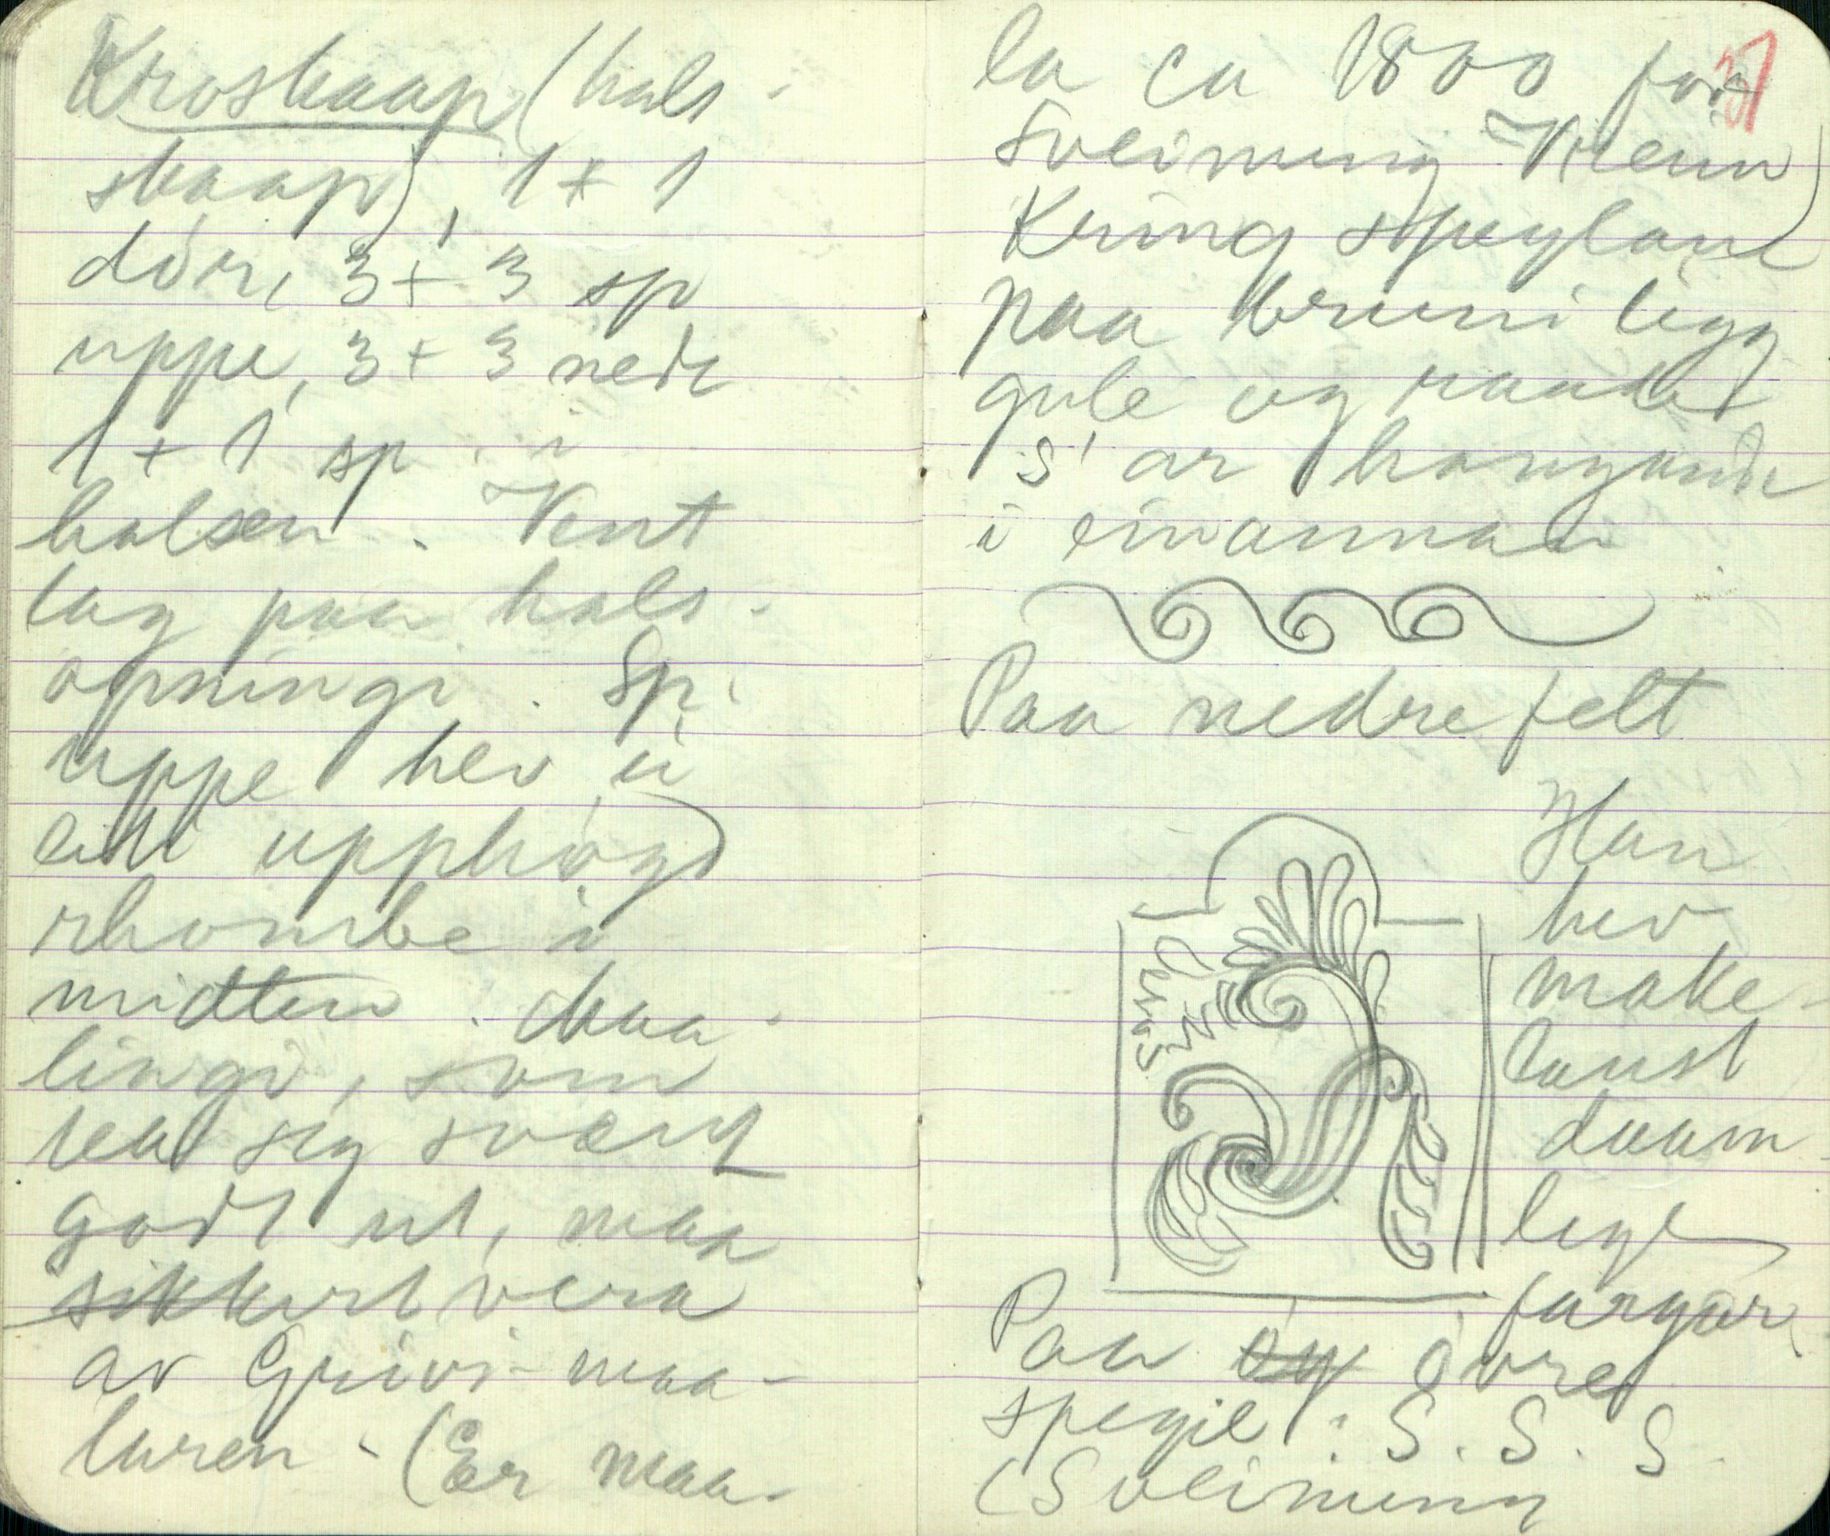 Kroskaap (hals-
skaap), 1 + 1
dör, 3 + 3 sp
uppe, 3 + 3 nede
1 + 1 sp i
halsen. Vent
lag paa hals-
opningi. Sp.
uppe hev ei
liti upphøgd
rhombe i
midten. Maa-
lingi, som
ter seg svært
godt ut, maa
sikkert vera
av Grivi-maa-
laren - (Er maa-
la ca 1800 for
Sveinung Vrenn)
Kring speglane
paa bruni ligg
gule og raude
S' ar hangande
i einannan
Paa nedre felt
Han
hev
make-
laust
daam-
lege
fargar.
Paa øvre
spegil: S. S. S
(Sveinung